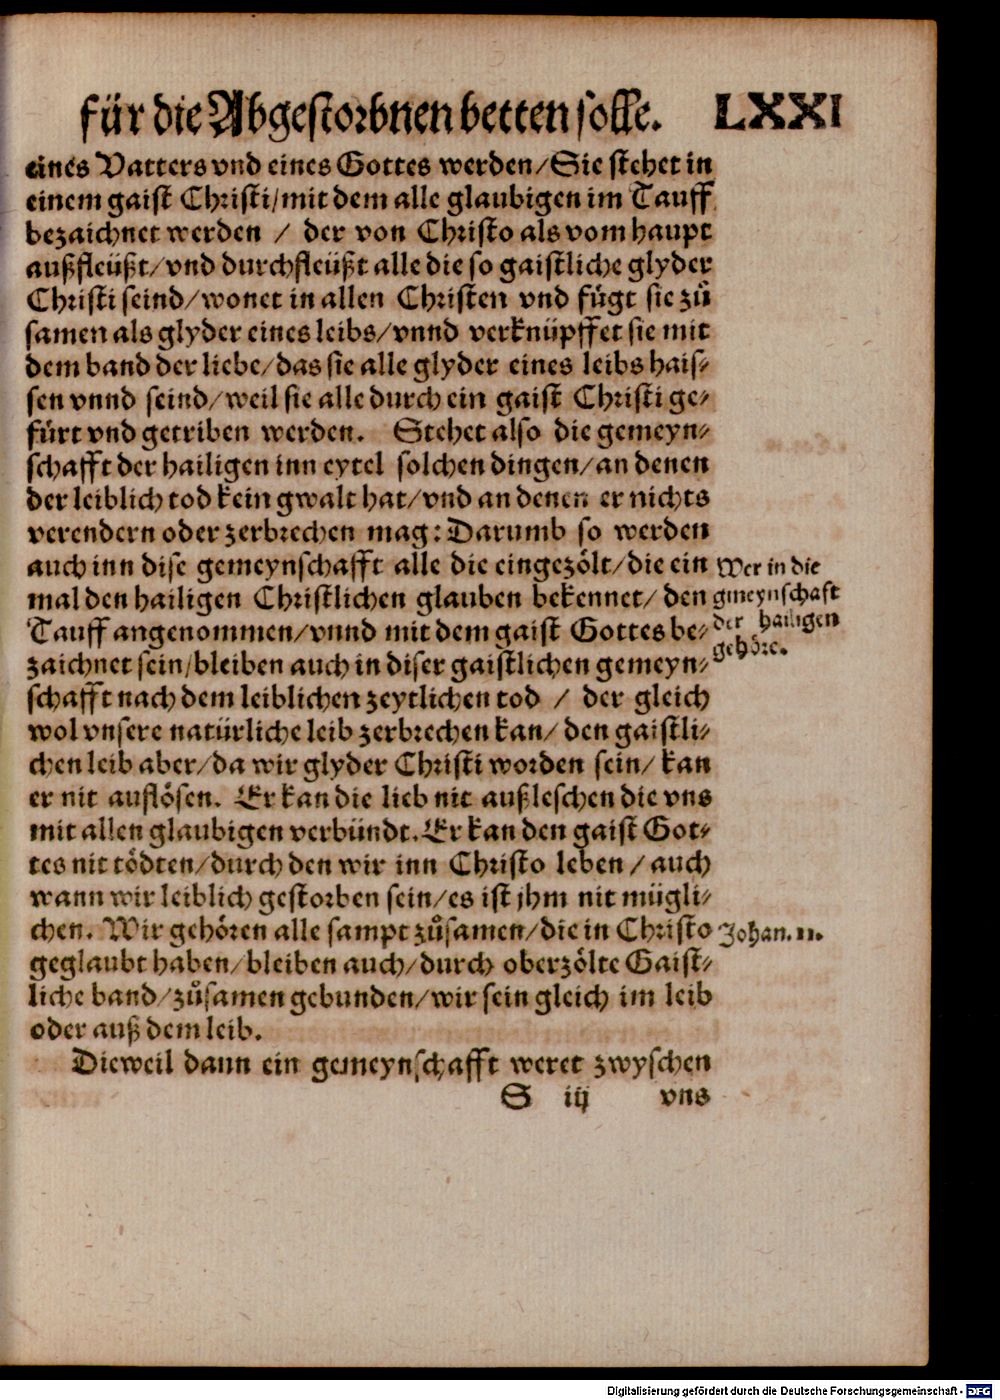 für die Abgestorbnen betten solle. LXXI
eines Vatters vnd eines Gottes werden/Sie stehet in
einem gaist Christi/mit dem alle glaubigen im Tauff
bezaichnet werden / der von Christo als vom haupt
außfleüßt/vnd durchfleüßt alle die so gaistliche glyder
Christi seind/wonet in allen Christen vnd fügt sie zů
samen als glyder eines leibs/vnnd verknüpffet sie mit
dem band der liebe/das sie alle glyder eines leibs hais-
sen vnnd seind/weil sie alle durch ein gaist Christi ge-
fürt vnd getriben werden. Stehet also die gemeyn-
schafft der hailigen inn eytel solchen dingen/an denen
der leiblich tod kein gwalt hat/vnd an denen er nichts
verendern oder zerbrechen mag: Darumb so werden
auch inn dise gemeynschafft alle die eingezölt/die ein
mal den hailigen Christlichen glauben bekennet/den
Tauff angenommen/vnnd mit dem gaist Gottes be-
zaichnet sein/bleiben auch in diser gaistlichen gemeyn-
schafft nach dem leiblichen zeytlichen tod / der gleich
wol vnsere natürliche leib zerbrechen kan/den gaistli-
chen leib aber/da wir glyder Christi worden sein/kan
er nit auflösen. Er kan die lieb nit außleschen die vns
mit allen glaubigen verbündt. Er kan den gaist Got-
tes nit tödten/durch den wir inn Christo leben / auch
wann wir leiblich gestorben sein/es ist jhm nit mügli-
chen. Wir gehören alle sampt zůsamen/die in Christo
geglaubt haben/bleiben auch/durch oberzölte Gaist-
liche band/zůsamen gebunden/wir sein gleich im leib
oder auß dem leib.
Dieweil dann ein gemeynschafft weret zwyschen
S iij vns
Wer in die
gmeynschaft
der hailigen
gehöre.
Johan. 11.
Digitalisierung gefördert durch die Deutsche Forschungsgemeinschaft - DFG